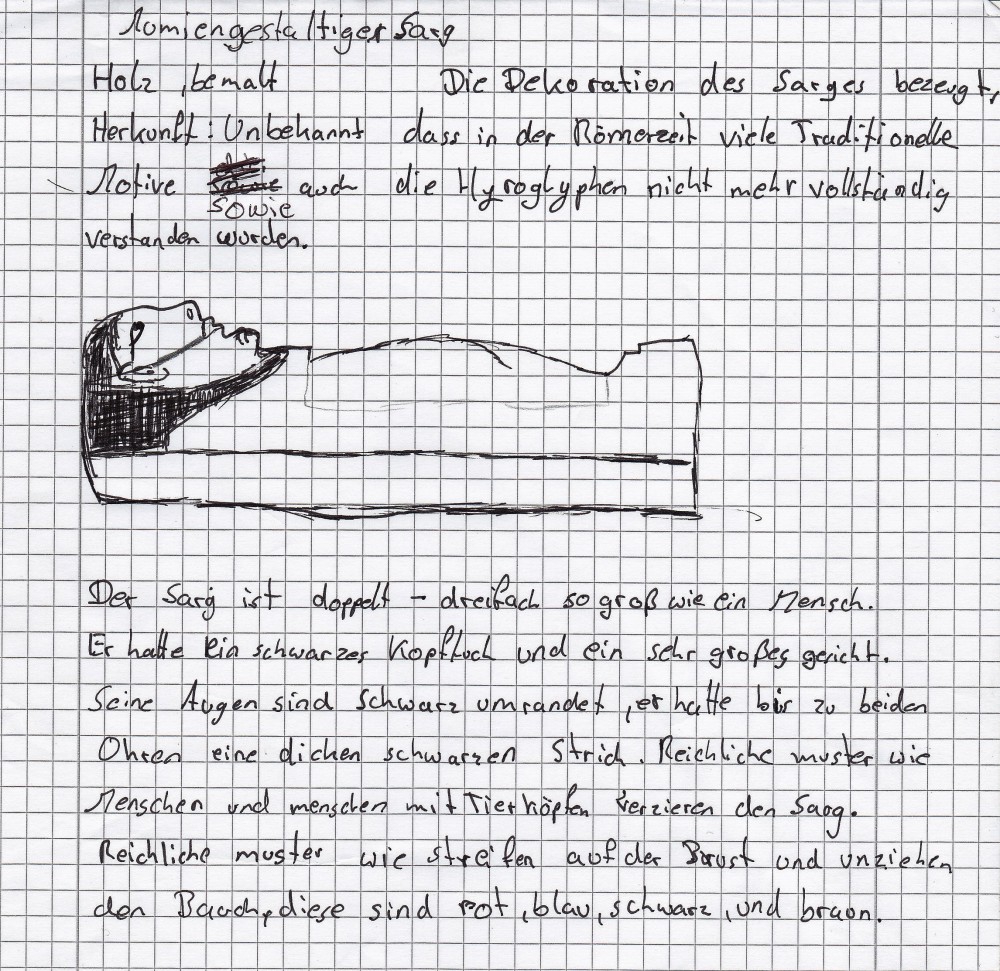 Momiengestaltiger Sarg
Holz, bemalt Die Dekoration des Sarges bezeugt,
Herkunft: Unbekannt dass in der Römerzeit viele Traditionelle
Motive sowie auch die Hyroglyphen nicht mehr vollständig
verstanden wurden.
Der Sarg ist doppelt - dreifach so groß wie ein Mensch.
Er hatte ein schwarzes Kopftuch und ein sehr großes gericht.
Seine Augen sind schwarz umrandet, er hatte bis zu beiden
Ohren eine dichen schwarzen Strich. Reichliche muster wie
Menschen und menschen mit Tierköpfen verzieren den Sarg.
Reichliche muster wie streifen auf der Brust und unziehen
den Bauch, diese sind rot, blau, schwarz, und braun.